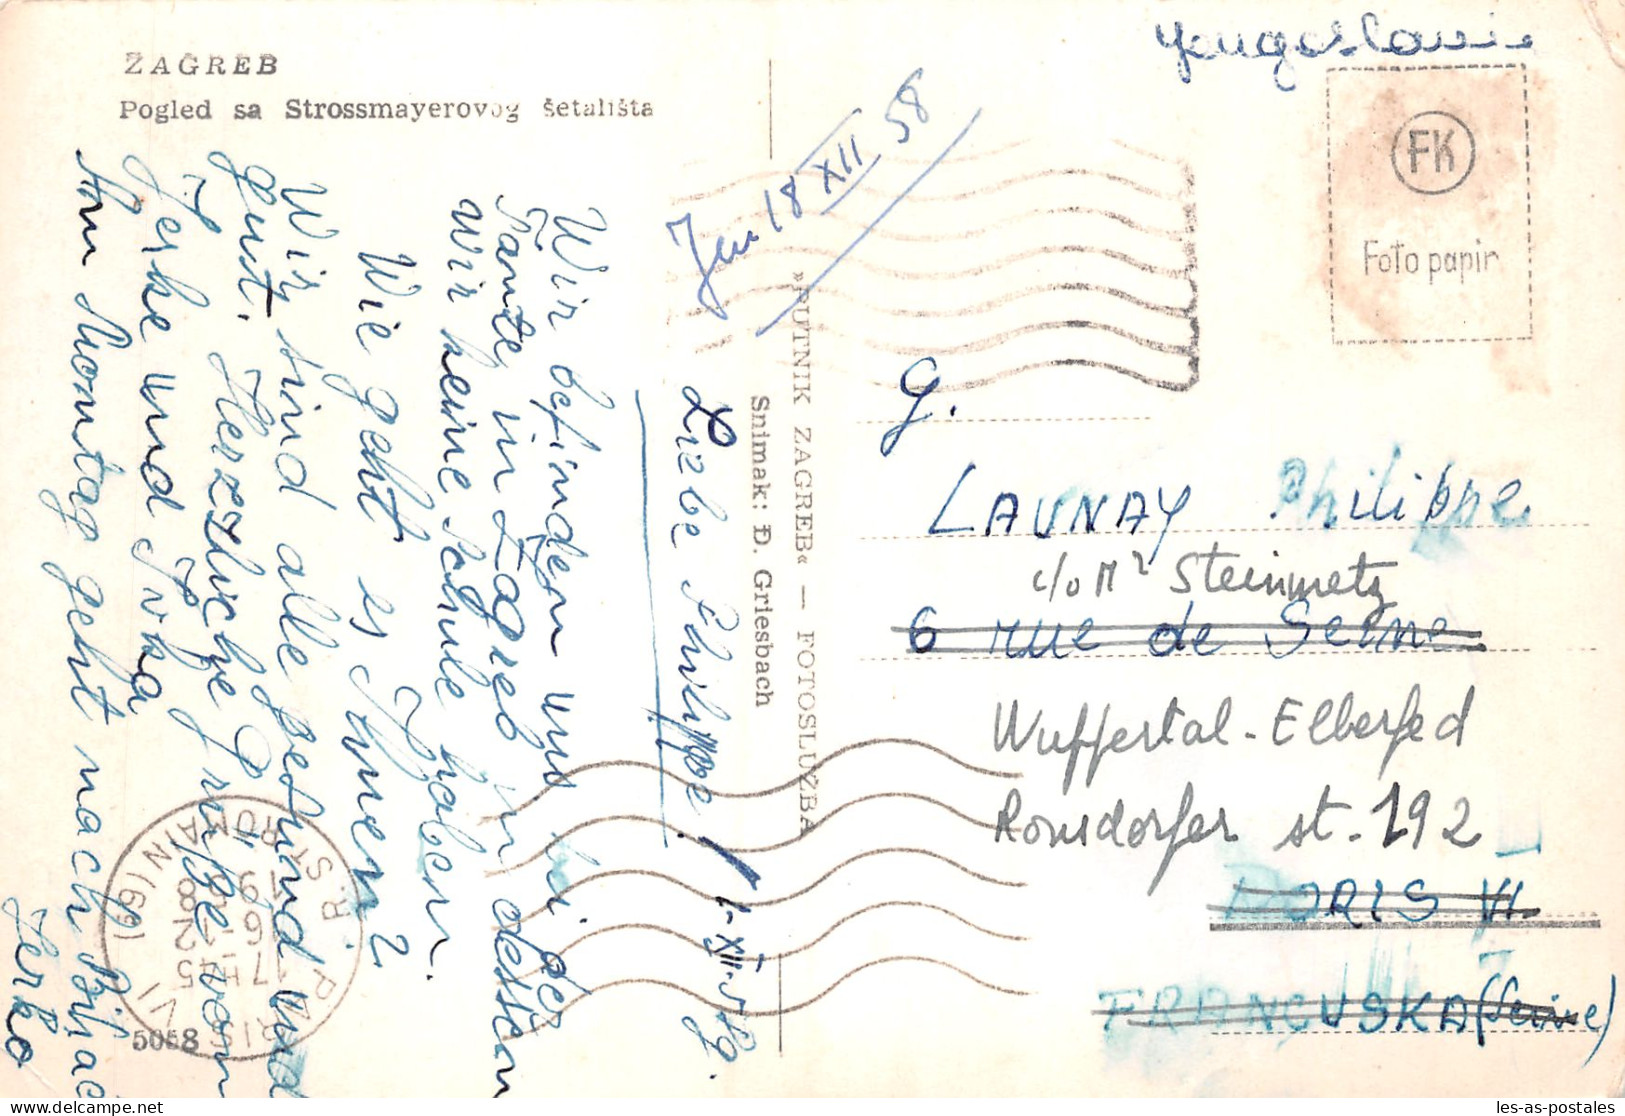 ZAGREB
Pogled sa Strossmayerovog šetališta
Yougoslavie
FK
Foto papir
18 XII 58
»PUTNIK ZAGREB« — FOTOSLUŽBA
Snimak: Đ. Griesbach
Liebe Philippe!
1-XII-58g.
Wir befinden uns bei der
Tante in Zagreb in dessen
wir keine Schule haben.
Wie geht es Ihnen?
Wir sind alle gesund und
gut. Herzliche Grüsse von
Jerke und Ivka
Am Montag geht nach Bihać
Jerko
G.
LAUNAY Philippe
c/o Mr Steinmetz
6 rue de Seine
Wuppertal-Elberfed
Ronsdorfer st. 192
PARIS VI
FRANCUSKA (Seine)
PARIS VI (69)
R. ST ROMAIN
17H45
16-12
1958
5058
les-as-postales